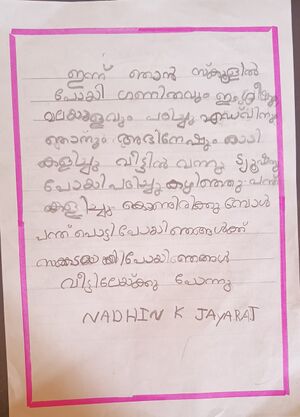 ഇന്ന് ഞാൻ സ്കൂളിൽ
പോയി ഗണിതവും ഇംഗ്ലീഷും
മലയാളവും പഠിച്ചു എഡ്വിനും
ഞാനും അഭിനേഷും കൂടി
കളിച്ചു വീട്ടിൽ വന്നു ട്യൂഷനു
പോയി പഠിച്ചു കഴിഞ്ഞു പന്ത്
കളിച്ചു കൊണ്ടിരിക്കുമ്പോൾ
പന്ത് പൊട്ടി പോയി ഞങ്ങൾക്ക്
സങ്കടമായി പോയി ഞങ്ങൾ
വീട്ടിലേയ്ക്കു പോന്നു
NADHIN K JAYARAJ